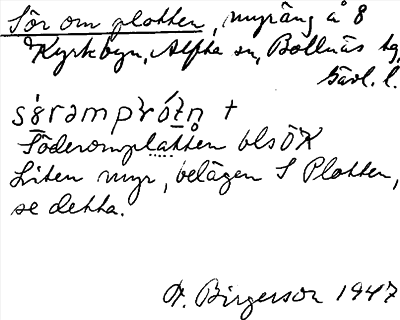 Sör om plotten, myräng å 8
Kyrkbyn, Alfta sn, Bollnäs tg,
Gävl. l.
Söderomplåtten blsÖK
Liten myr, belägen S Plotten,
se detta.
A. Birgerson 1947